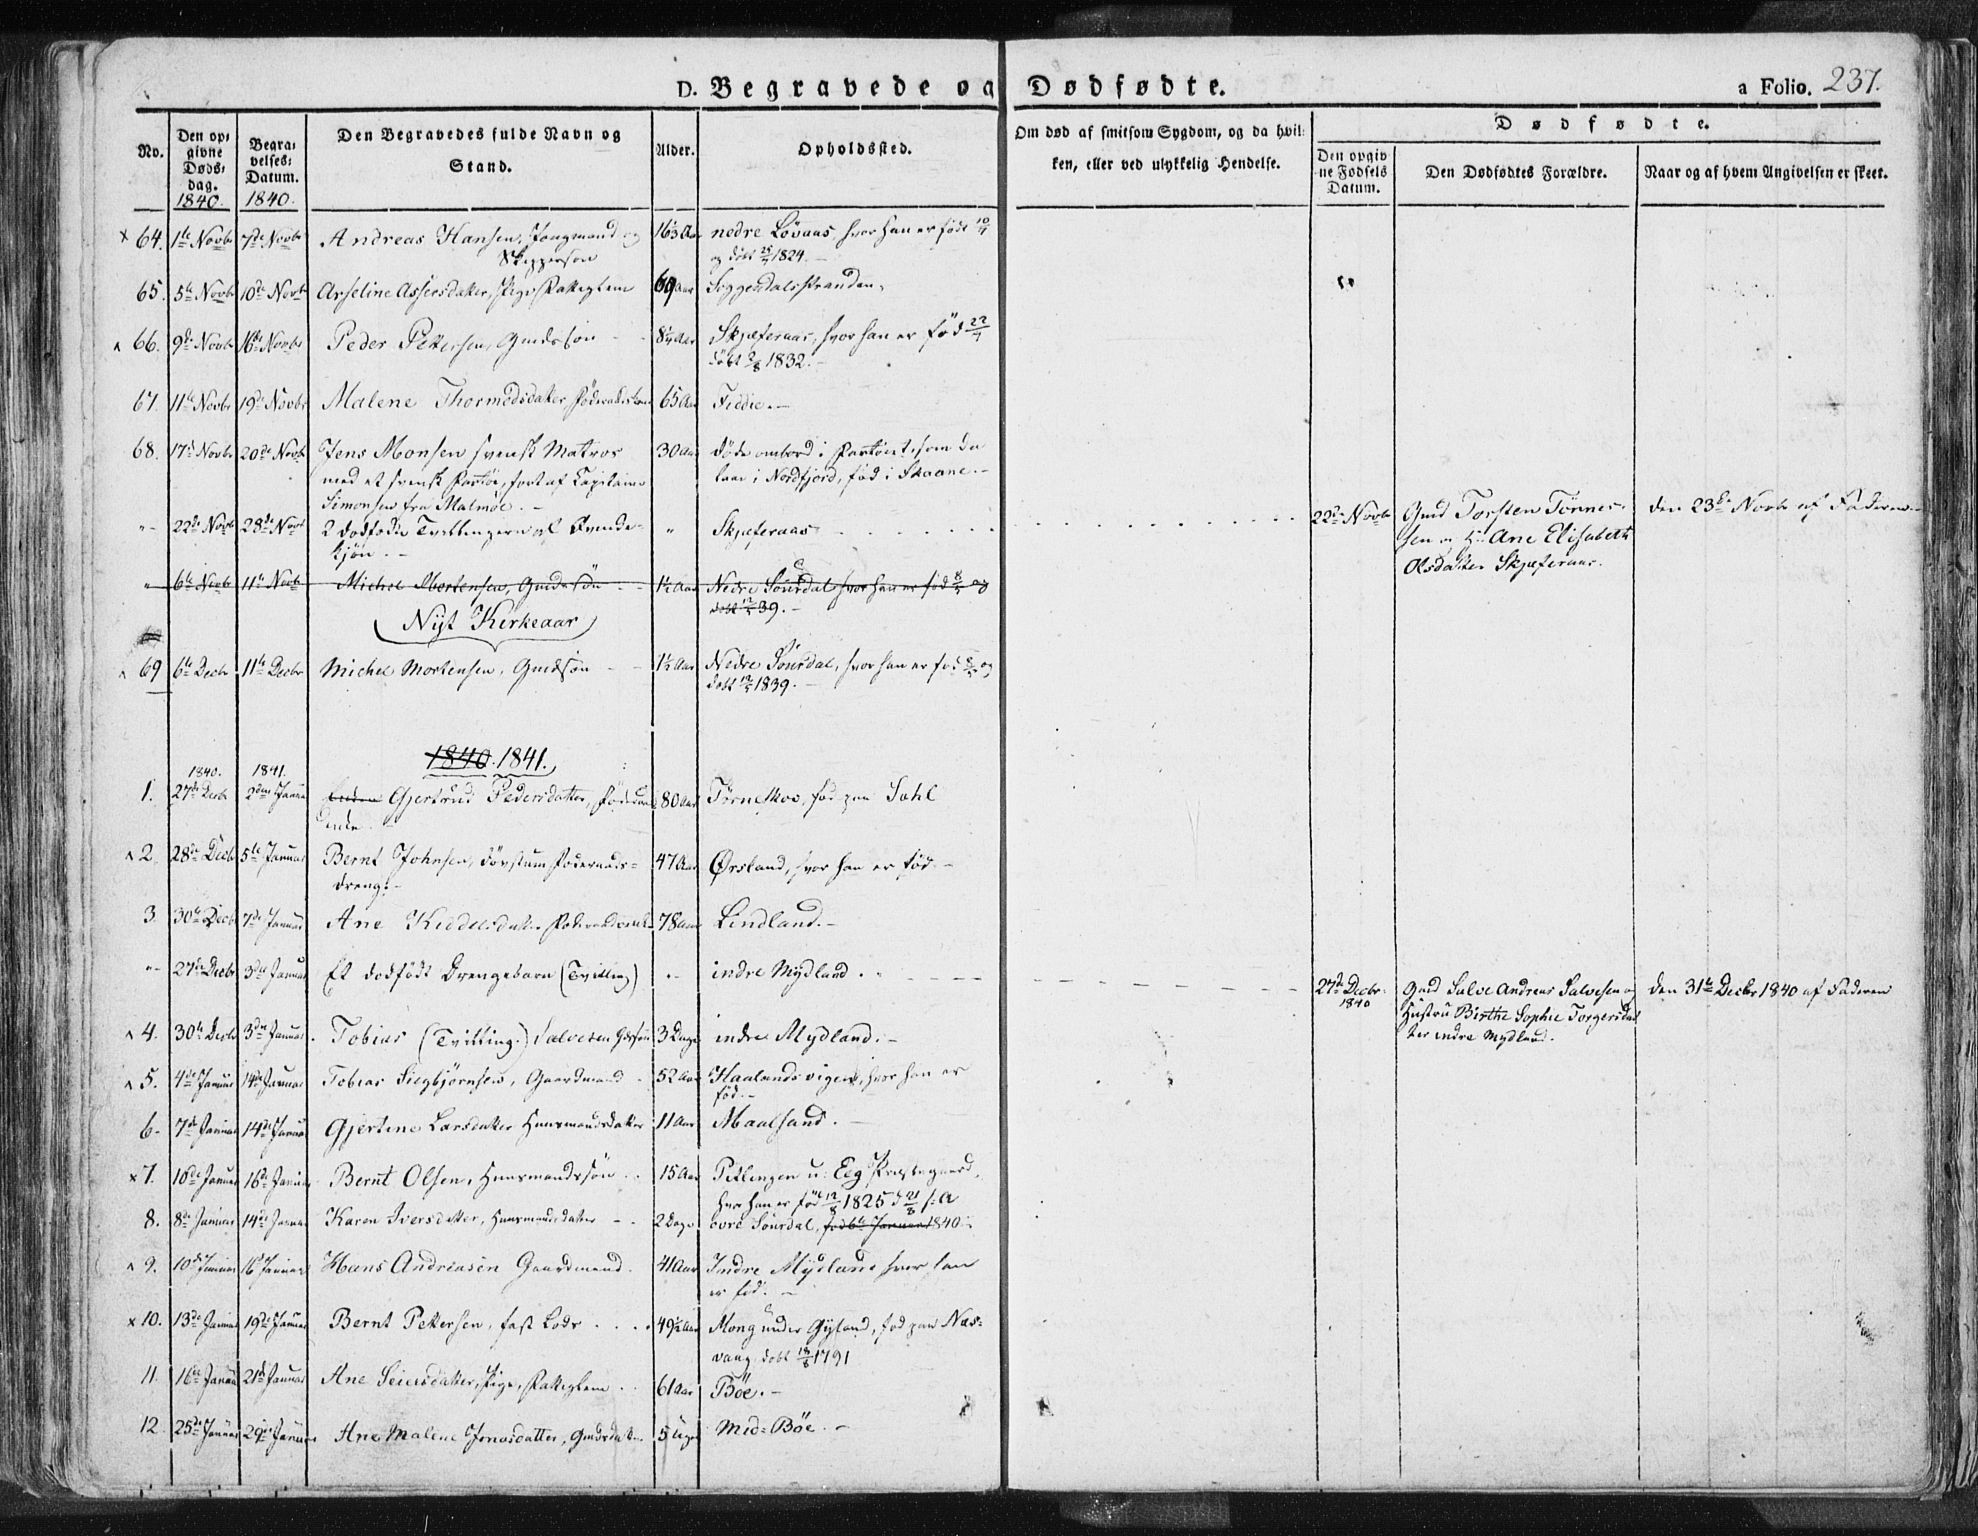 D. Begravede og Dødfødte.
a Folio. 237.
No.
Den opgivne Dødsdag. 1840.
Begravelses-Datum. 1840.
Den Begravedes fulde Navn og Stand.
Alder.
Opholdssted.
Om død af smitsom Sygdom, og da hvilken, eller ved ulykkelig Hendelse.
Dødfødte.
Den opgivne Fødsels Datum.
Den Dødfødtes Forældre.
Naar og af hvem Angivelsen er skeet.
64. 1te Novbr 7de Novbr Andreas Hansen, Ungmand og nedre Løvaas, hvor han er født
Skippersøn og døbt 25/4 1824.
65. 5te Novbr 10de Novbr Aseline Assersdatter, Pige, 69 Aar Soggendalsstranden.
66. 9de Novbr 16de Novbr Peder Pettersen, Gmdssøn 8¼ Aar Skjæferaas, hvor han er fød 22/7
døbt 1832.
67. 11te Novbr 19de Novbr Malene Thormodsdatter 65 Aar Fidde.
68. 17de Novbr 20de Novbr Jens Monsen svensk Matros 30 Aar døde ombord i Fartøiet, som da
med et svensk Fartøi, ført af Capitain laae i Nordfjord, fød i Skaane.
Simonsen fra Malmøe.
" 22de Novbr 28de Novbr 2 dødfødte Tvillinger af Qvinde- " Skjæferaas 22de Novbr Gmd Torsten Tønnes- den 23de Novbr af Faderen
kjøn. sen og H. Ane Elisabeth
Olsdatter Skjæferaas.
" 6te Novb 11te Novb Michel Mortensen, Gmdssøn 1½ Aar Nedre Sourdal hvor han er fød 8/5 og
døbt 12/5 39.
Nyt Kirkeaar
69 6te Decbr 11te Decbr Michel Mortensen, Gmdssøn 1½ Aar Nedre Sourdal, hvor han er fød 8/5 og
døbt 12/5 1839.
1840. 1841.
1840. 1841.
1. 27de Decbr 2den Januar Gjertrud Pedersdatter, 80 Aar Tørneskov, fød paa Sahl
2. 28de Decbr 5te Januar Bernt Johnsen, døvstum 47 Aar Ørsland, hvor han er fød.
dreng.
3. 30te Decbr 7de Januar Ane Kiddelsdatter 78 Aar Lindland.
" 27de Decbr 3die Januar Et dødfødt Drengebarn (Tvilling) " indre Mydland. 27de Decbr 1840 Gmd Salve Andreas Salvesen og den 31te Decbr 1840 af Faderen
Hustru Birthe Sophie Torgersdat
ter indre Mydland.
4. 30te Decbr 3die Januar Tobias (Tvilling.) Salvesen 3 Dage indre Mydland.
5. 4de Januar 14de Januar Tobias Siegbjørnsen, Gaardmand 52 Aar Haalandsvigen, hvor han er
fød.
6. 7de Januar 14de Januar Gjertine Larsdatter Huusmandsdatter 11 Aar Maalsand.
7. 10de Januar 16de Januar Bernt Olsen, Huusmandssøn 15 Aar Petlingen u. Eeg Præstegaard,
hvor han er fød 12/8 1825 d 21/8 s: A
8. 8de Januar 14de Januar Karen Iversdatter, Huusmandsdatter 2 Dage øvre Sourdal, fød 6te Januar 1840
9. 10de Januar 16de Januar Hans Andreasen Gaardmand 41 Aar Indre Mydland hvor han
er fød.
10. 13de Januar 19de Januar Bernt Pettersen, fast Lods 49½ Aar Mong under Gyland, fød paa Næs-
vang døbt 18/8 1791
11. 16de Januar 21de Januar Ane Seiersdatter, Pige, 61 Aar Bøe.
12. 25de Januar 29de Januar Ane Malene Jonasdatter, Gmdsdatter 5 Uger Mid-Bøe.